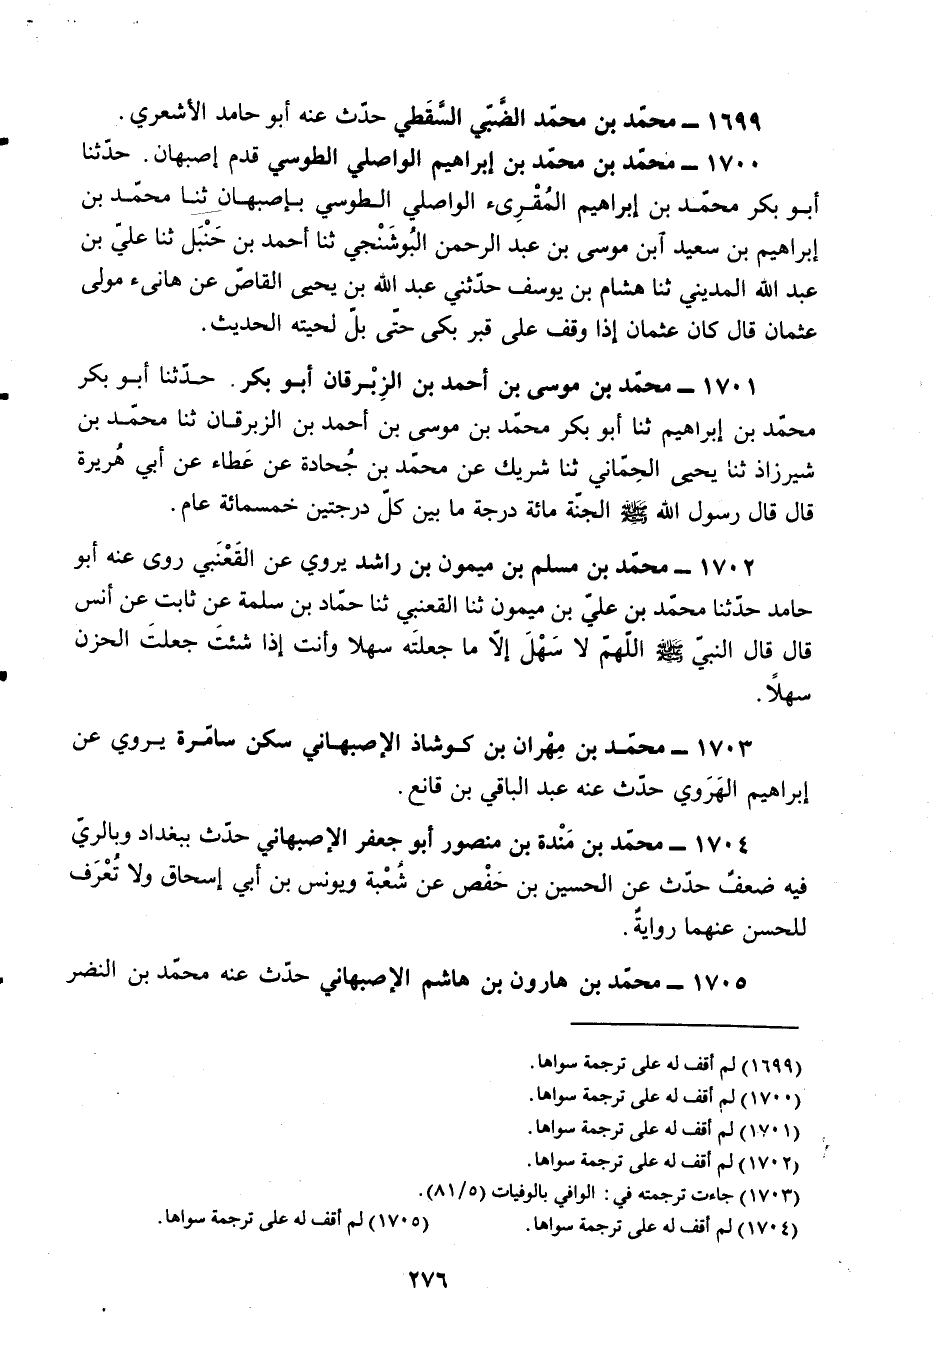 ١٦٩٩ ــ محمّد بن محمّد الضَّبّي السَّقَطي حدّث عنه أبو حامد الأشعري .
١٧٠٠ ــ محمّد بن محمّد بن إبراهيم الواصلي الطوسي قدم إصبهان. حدّثنا
أبو بكر محمّد بن إبراهيم المُقْرِىء الواصلي الطوسي بإصبهان ثنا محمّد بن
إبراهيم بن سعيد آبن موسى بن عبد الرحمن البُوشَنْجي ثنا أحمد بن حَنْبَل ثنا عليّ بن
عبد الله المديني ثنا هشام بن يوسف حدّثني عبد الله بن يحيى القاصّ عن هانىء مولى
عثمان قال كان عثمان إذا وقف على قبر بكى حتّى بلّ لحيته الحديث.
١٧٠١ ــ محمّد بن موسى بن أحمد بن الزِبْرقان أبو بكر. حدّثنا أبو بكر
محمّد بن إبراهيم ثنا أبو بكر محمّد بن موسى بن أحمد بن الزبرقان ثنا محمّد بن
شيرزاذ ثنا يحيى الحِمّاني ثنا شريك عن محمّد بن جُحادة عن عَطاء عن أبي هُريرة
قال قال رسول الله ﷺ الجنّة مائة درجة ما بين كلّ درجتين خمسمائة عام.
١٧٠٢ ــ محمّد بن مسلم بن ميمون بن راشد يروي عن القَعْنَبي روى عنه أبو
حامد حدّثنا محمّد بن عليّ بن ميمون ثنا القعنبي ثنا حمّاد بن سلمة عن ثابت عن أنس
قال قال النبيّ ﷺ اللّهمّ لا سَهْلَ إلاّ ما جعلتَه سهلا وأنت إذا شئتَ جعلتَ الحزن
سهلاً.
١٧٠٣ ــ محمّد بن مِهْران بن كوشاذ الإصبهاني سكن سامّرة يروي عن
إبراهيم الهَرَوي حدّث عنه عبد الباقي بن قانع.
١٧٠٤ ــ محمّد بن مَنْدة بن منصور أبو جعفر الإصبهاني حدّث ببغداد وبالريّ
فيه ضعفٌ حدّث عن الحسين بن حَفْص عن شُعْبة ويونس بن أبي إسحاق ولا تُعْرَف
للحسن عنهما روايةٌ.
١٧٠٥ ــ محمّد بن هارون بن هاشم الإصبهاني حدّث عنه محمّد بن النضر
(١٦٩٩) لم أقف له على ترجمة سواها.
(١٧٠٠) لم أقف له على ترجمة سواها.
(١٧٠١) لم أقف له على ترجمة سواها.
(١٧٠٢) لم أقف له على ترجمة سواها.
(١٧٠٣) جاءت ترجمته في : الوافي بالوفيات (٨١/٥).
(١٧٠٤) لم أقف له على ترجمة سواها. (١٧٠٥) لم أقف له على ترجمة سواها.
٢٧٦